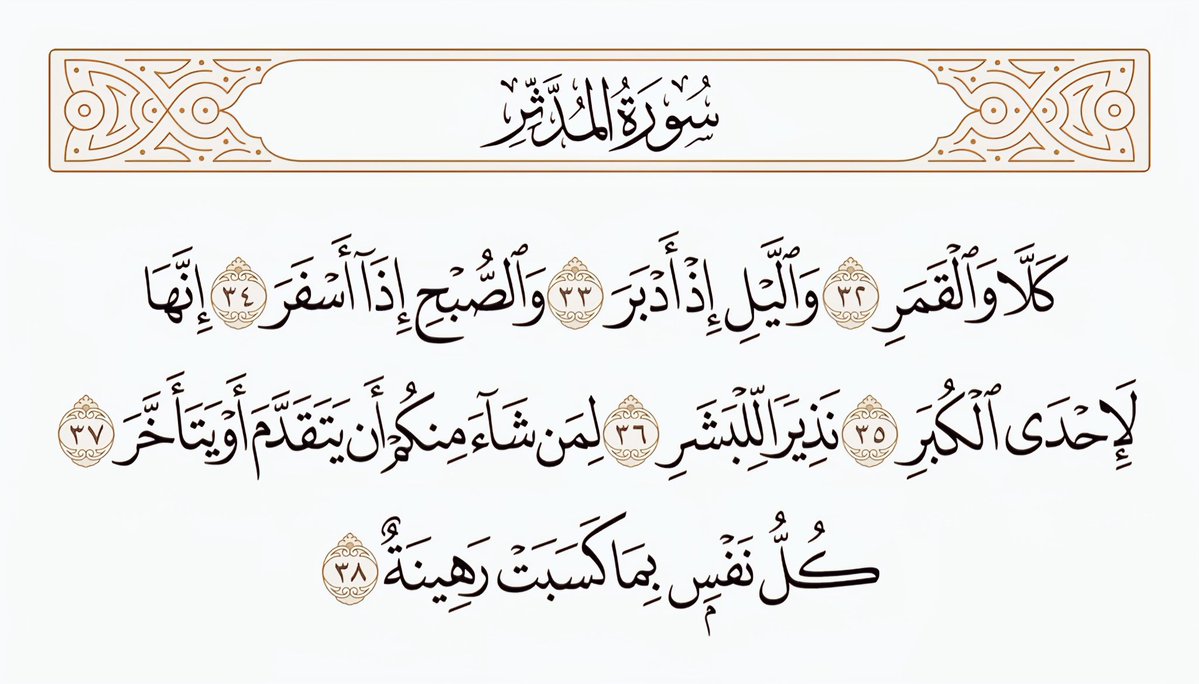 سُورَةُ المُدَّثِّرِ
كَلَّا وَٱلْقَمَرِ ٣٢ وَٱلَّيْلِ إِذْ أَدْبَرَ ٣٣ وَٱلصُّبْحِ إِذَآ أَسْفَرَ ٣٤ إِنَّهَا
لَإِحْدَى ٱلْكُبَرِ ٣٥ نَذِيرًا لِّلْبَشَرِ ٣٦ لِمَن شَآءَ مِنكُمْ أَن يَتَقَدَّمَ أَوْ يَتَأَخَّرَ ٣٧
كُلُّ نَفْسٍۭ بِمَا كَسَبَتْ رَهِينَةٌ ٣٨